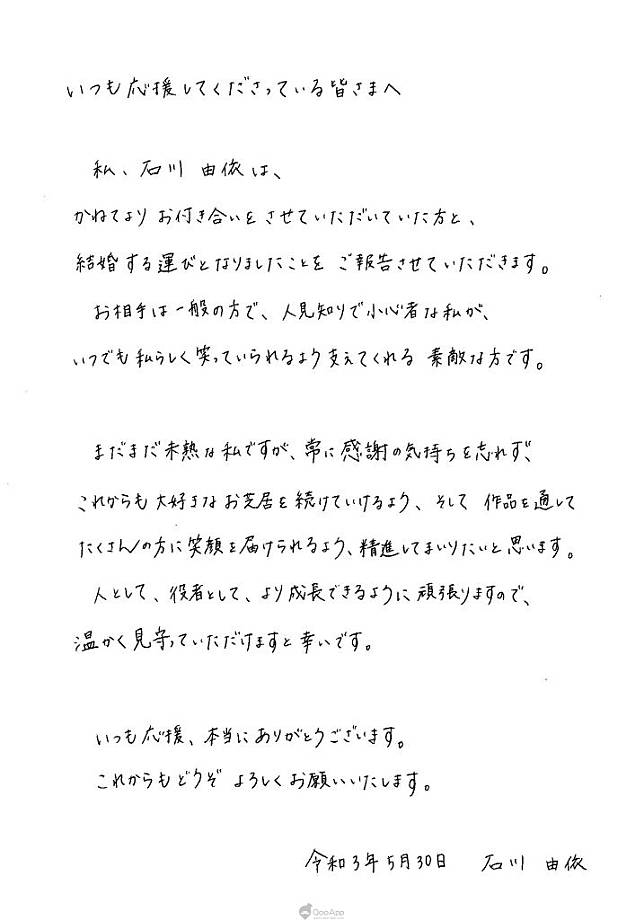 いつも応援してくださっている皆さまへ
私、石川 由依は、
かねてより お付き合いを させていただいていた方と、
結婚する運びとなりましたことを ご報告させていただきます。
お相手は一般の方で、人見知りで小心者な私が、
いつでも私らしく笑っていられるよう支えてくれる 素敵な方です。
まだまだ未熟な私ですが、常に感謝の気持ちを忘れず、
これからも大好きなお芝居を続けていけるよう、そして 作品を通して
たくさんの方に笑顔を届けられるよう、精進してまいりたいと思います。
人として、役者として、より成長できるように頑張りますので、
温かく見守っていただけますと幸いです。
いつも応援、本当にありがとうございます。
これからもどうぞ よろしくお願いいたします。
令和3年5月30日 石川 由依
QooApp